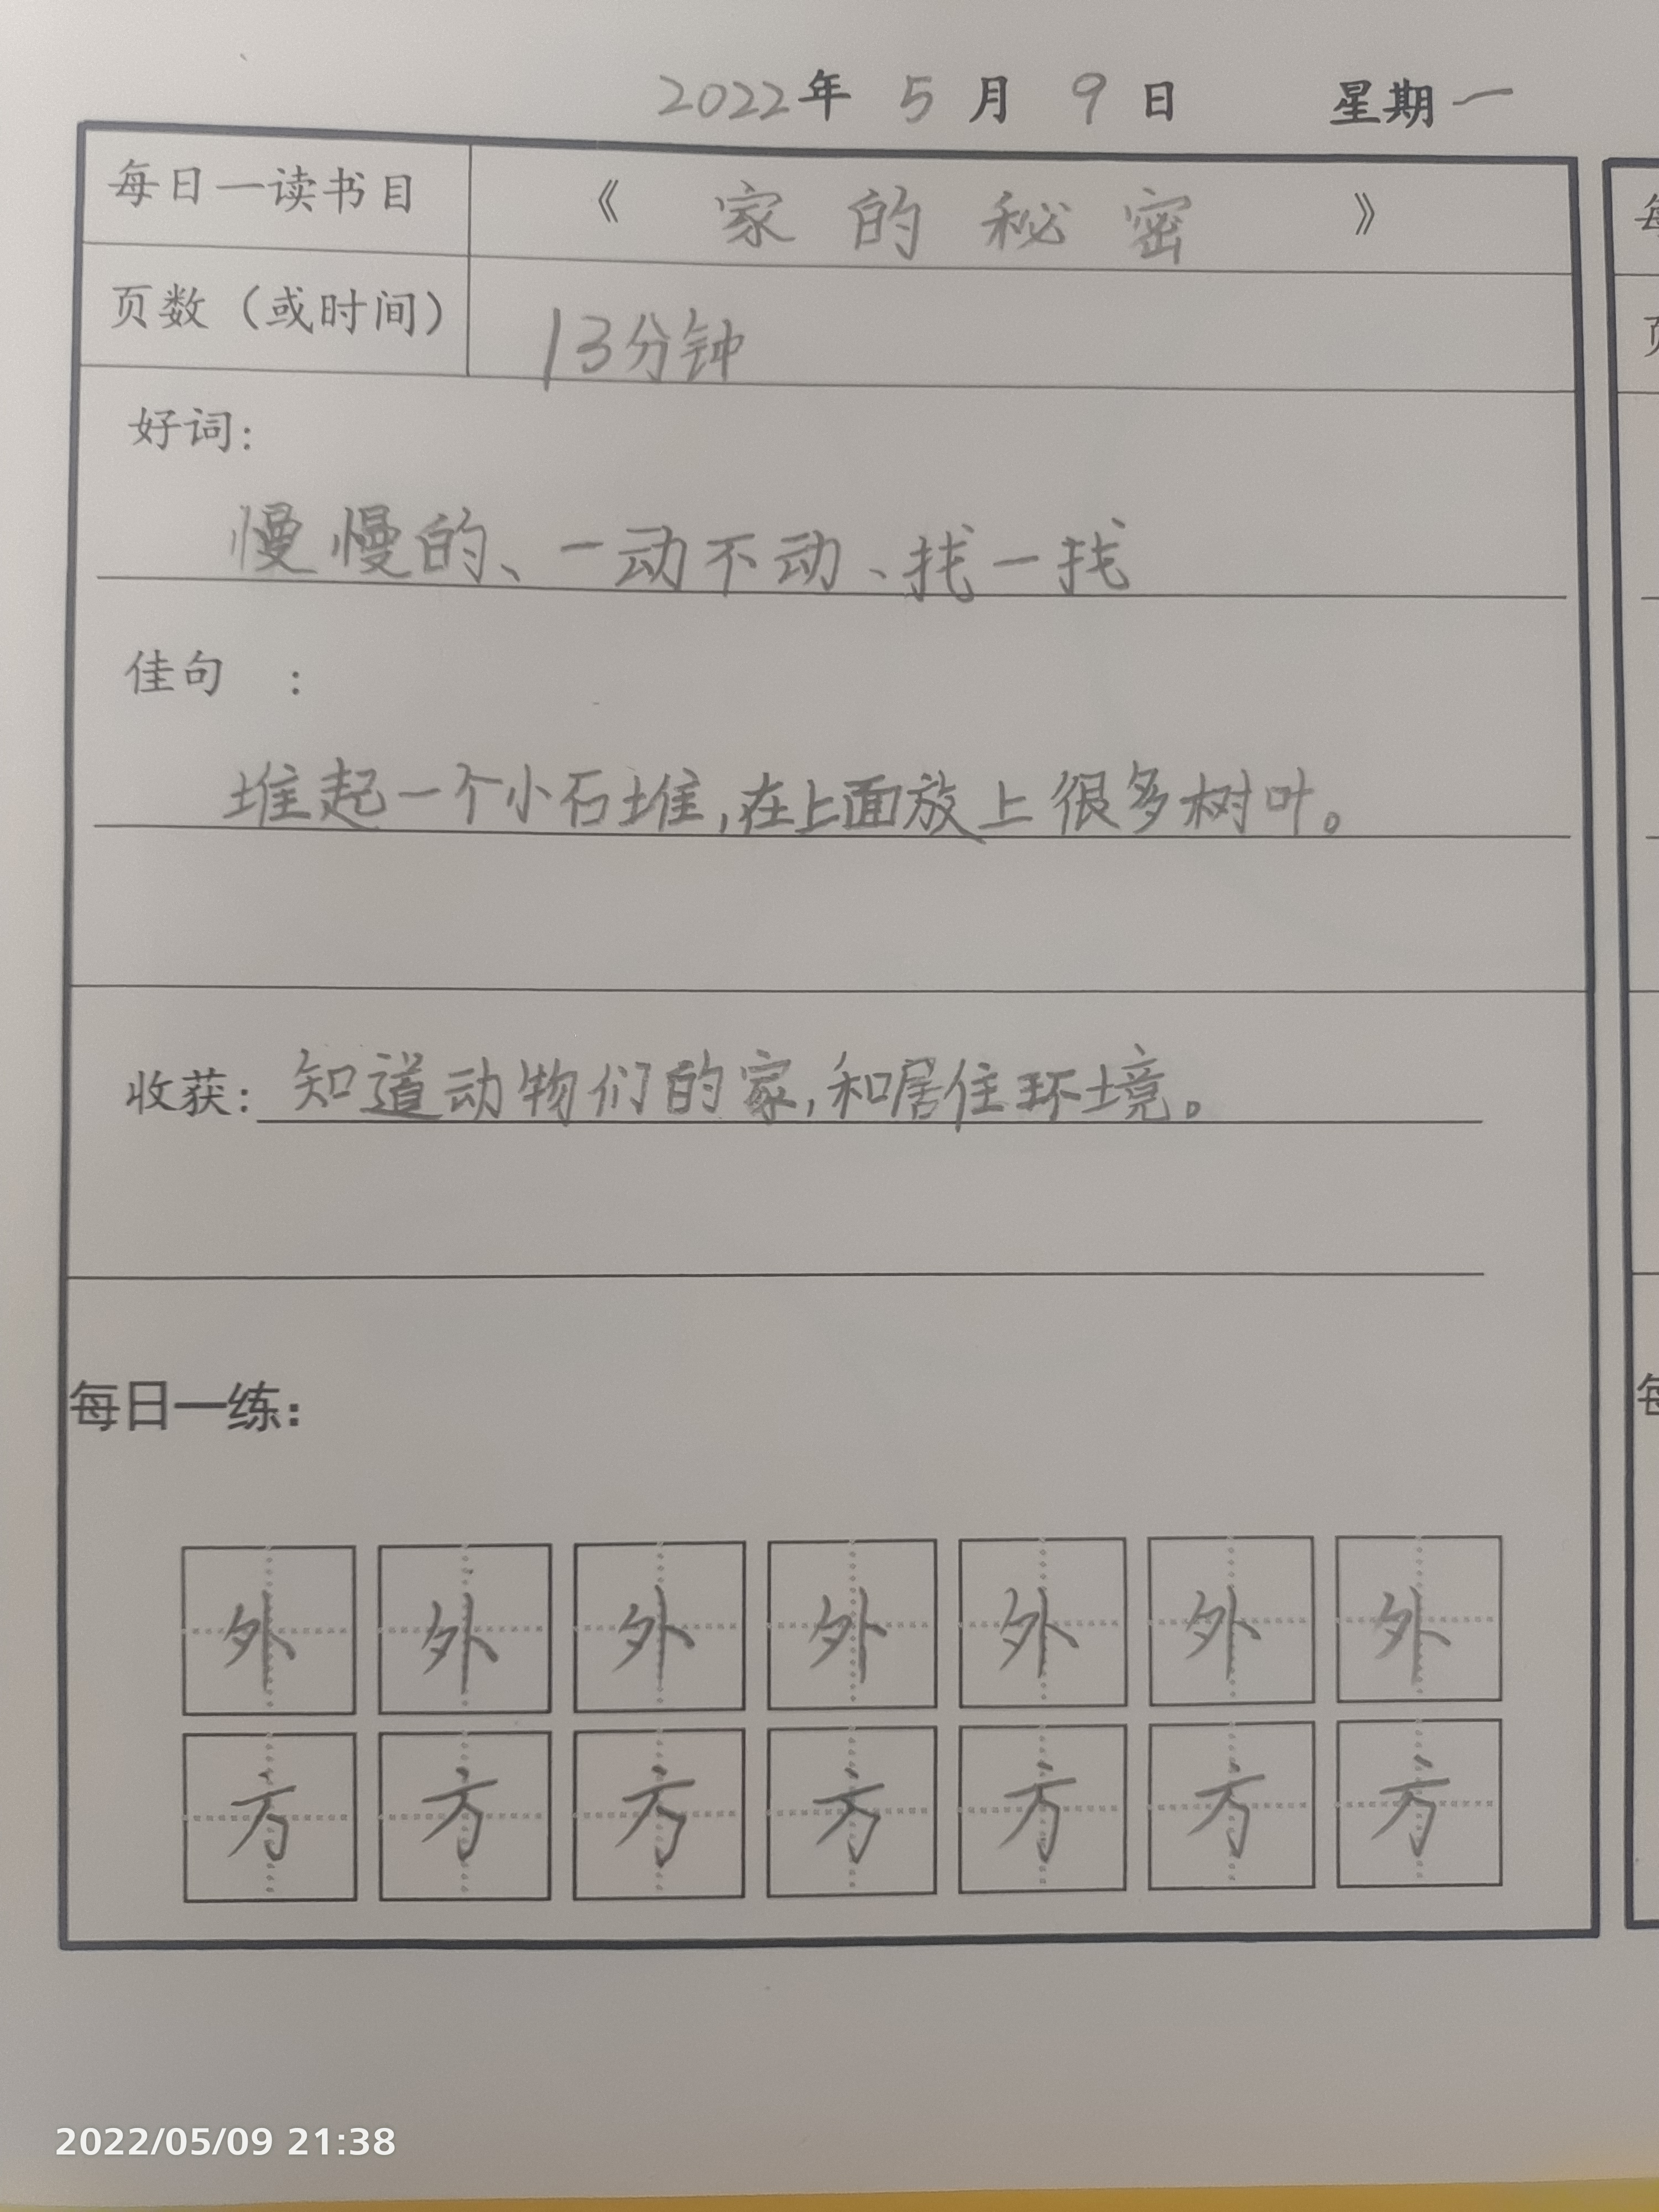 2022年 5 月 9 日 星期一
每日一读书目 《 家的秘密 》
页数（或时间） 13分钟
好词：
慢慢的、一动不动、找一找
佳句 ：
堆起一个小石堆，在上面放上很多树叶。
收获：知道动物们的家，和居住环境。
每日一练：
外 外 外 外 外 外 外
方 方 方 方 方 方 方
2022/05/09 21:38